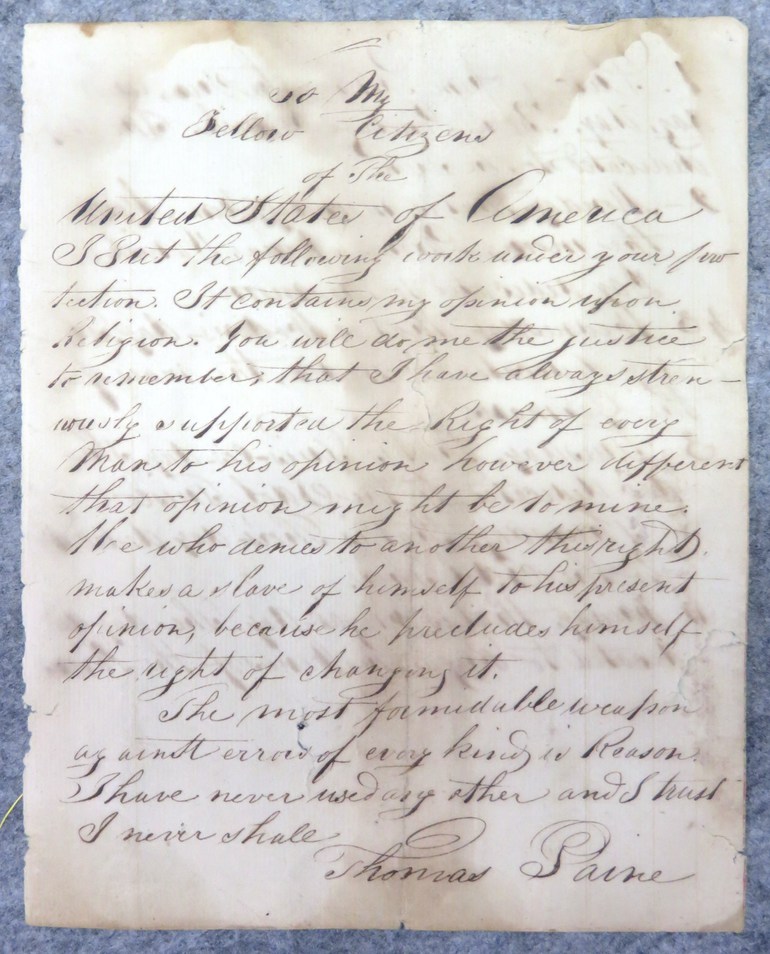 to My
Fellow Citizens
of The
United States of America
I Put the following work under your pro
tection. It contains my opinion upon
Religion. You will do me the justice
to remember, that I have always stren-
uously supported the Right of every
Man to his opinion however different
that opinion might be to mine.
He who denies to another this right,
makes a slave of himself to his present
opinion, because he precludes himself
the right of changing it.
The most formidable weapon
against errors of every kind is Reason.
I have never used any other and I trust
I never shall
Thomas Paine